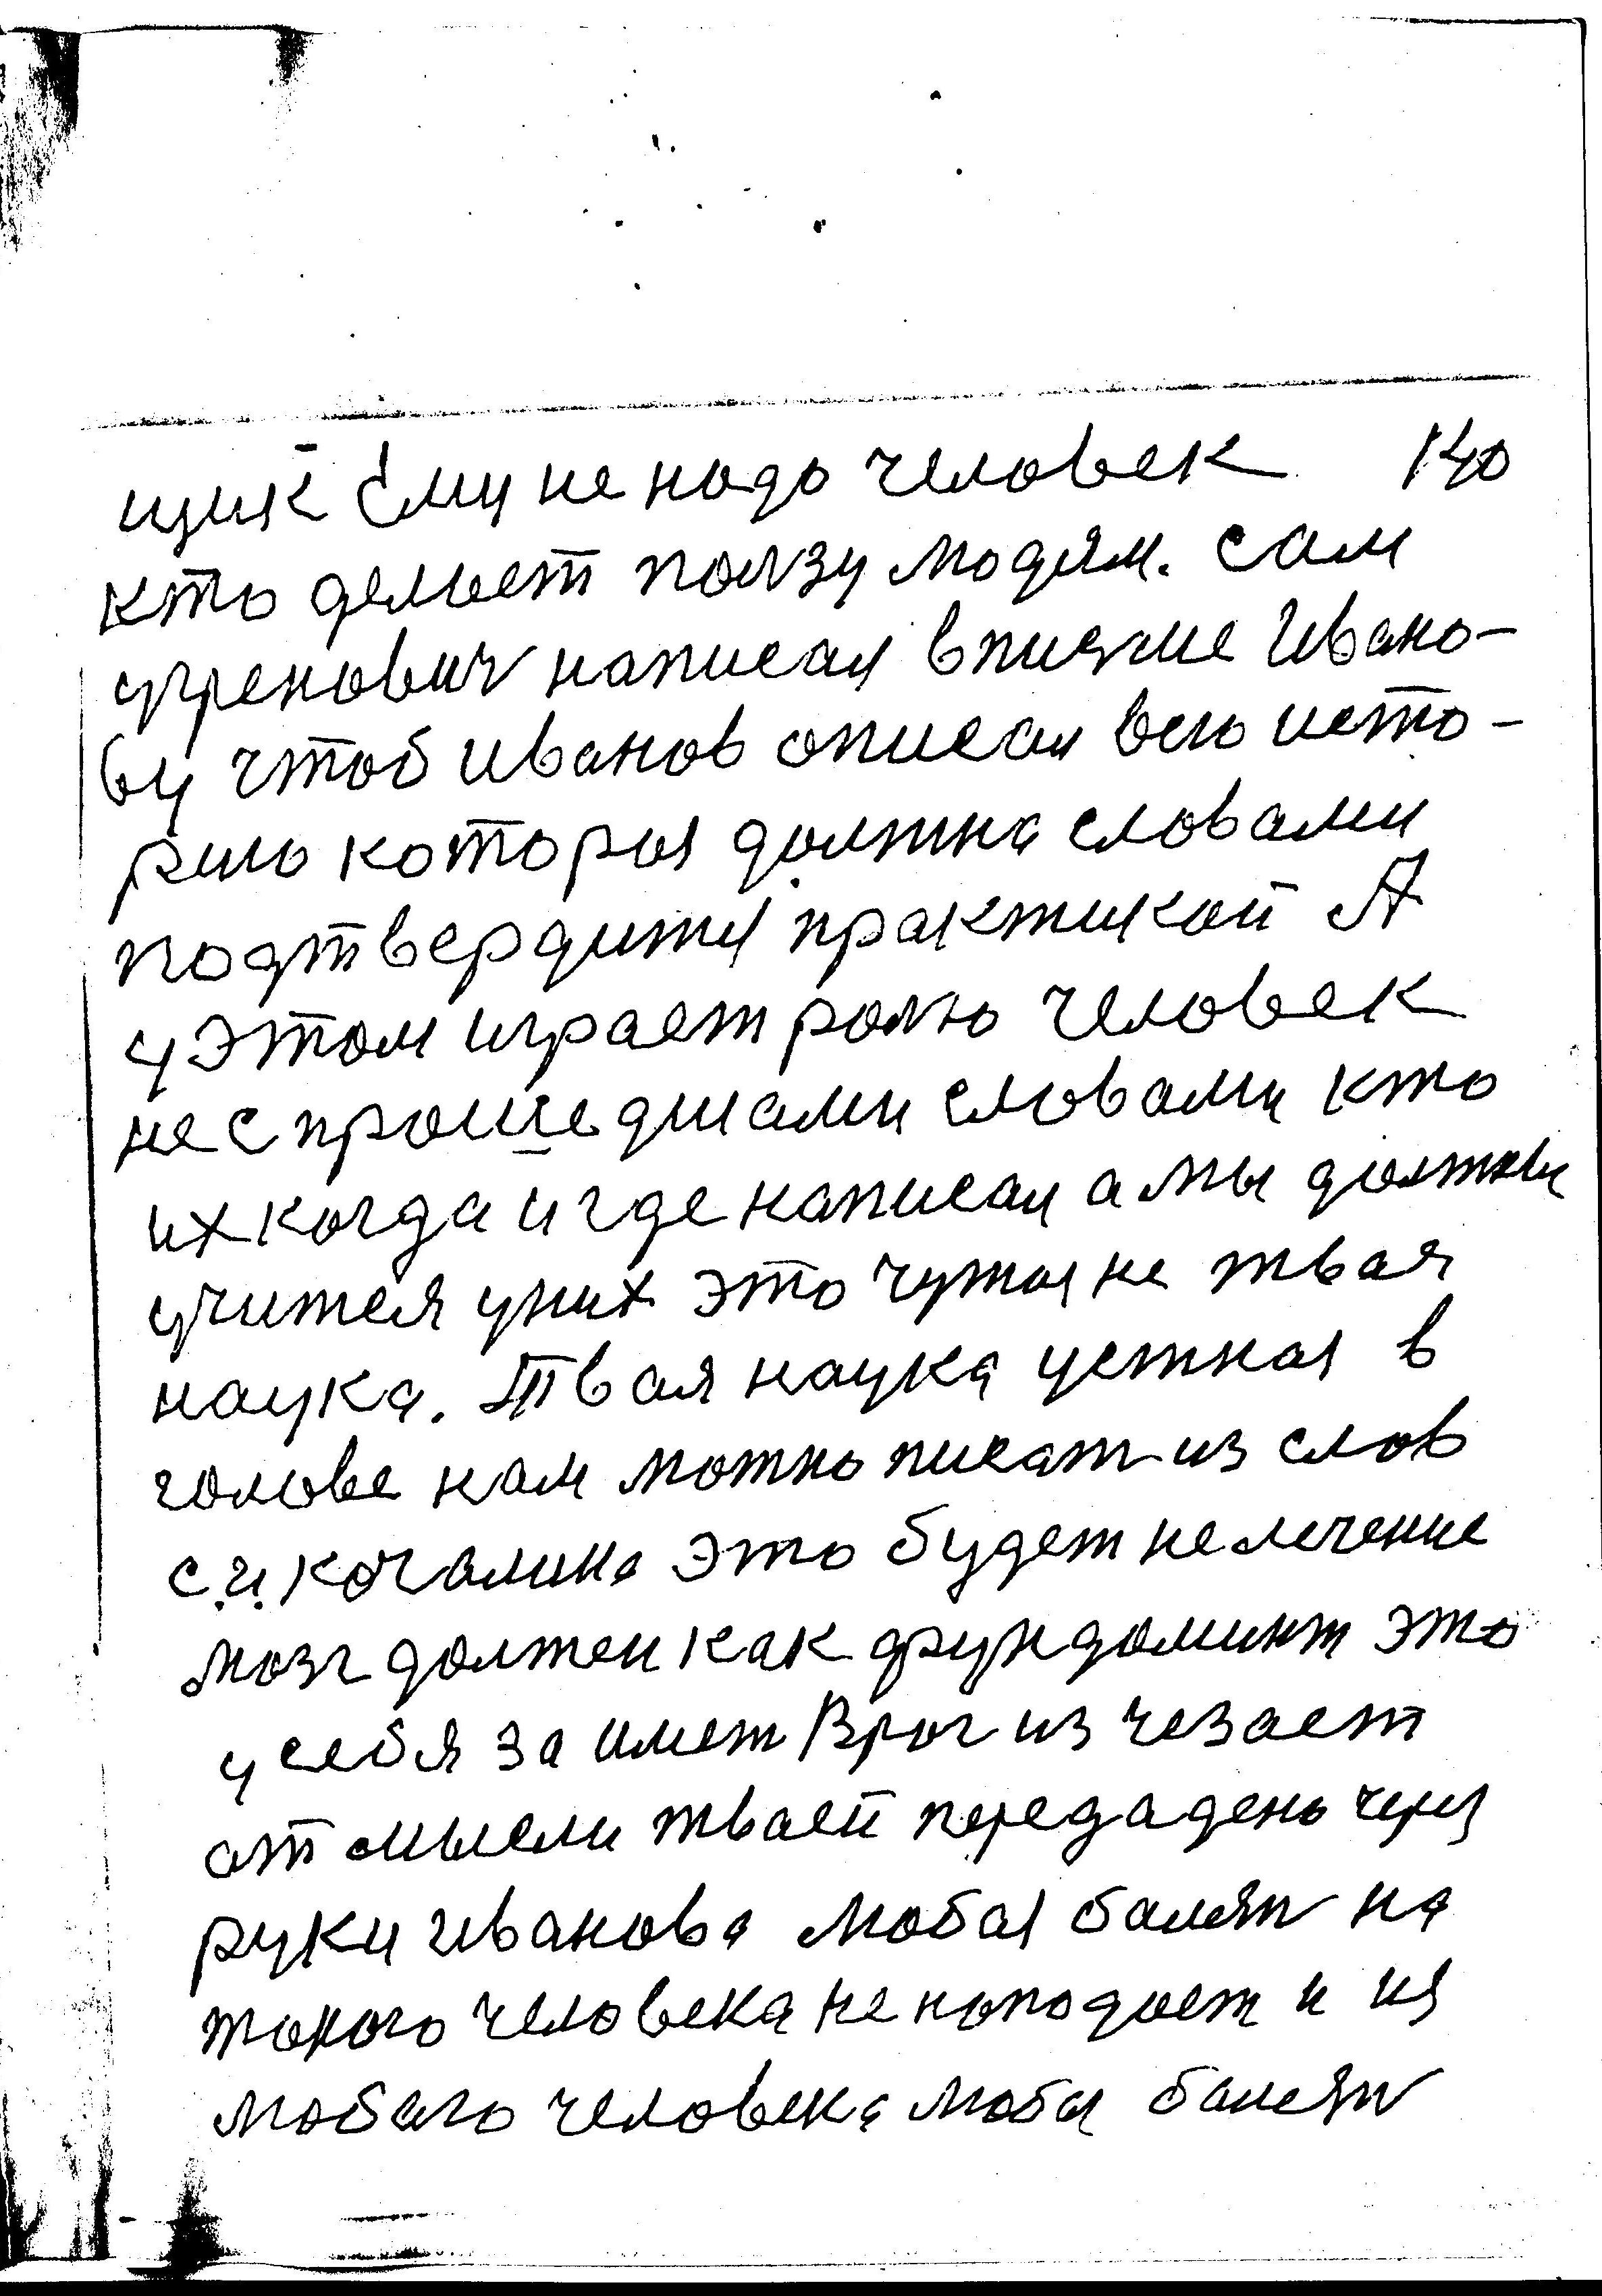 щик Ему не надо человек 140
кто делает ползу людям. сам
угренович написал в писме Ивано-
ву чтоб иванов описал всю исто-
рию которая должна словами
подтвердится практикой А
у этом играет ролю человек
не с прошедшами словами кто
их когда и где написал а мы должны
учится у них это чужая не твая
наука. Твая наука устная в
голове нам можно писат из слов
с.и. кочалина это будет не лечение
мозг должен как фундоминт это
у себя за имет Враг из чезает
от мысли тваей передадено через
руки иванова любая балезн на
такого человека не нападает и из
любого человека любая балезн